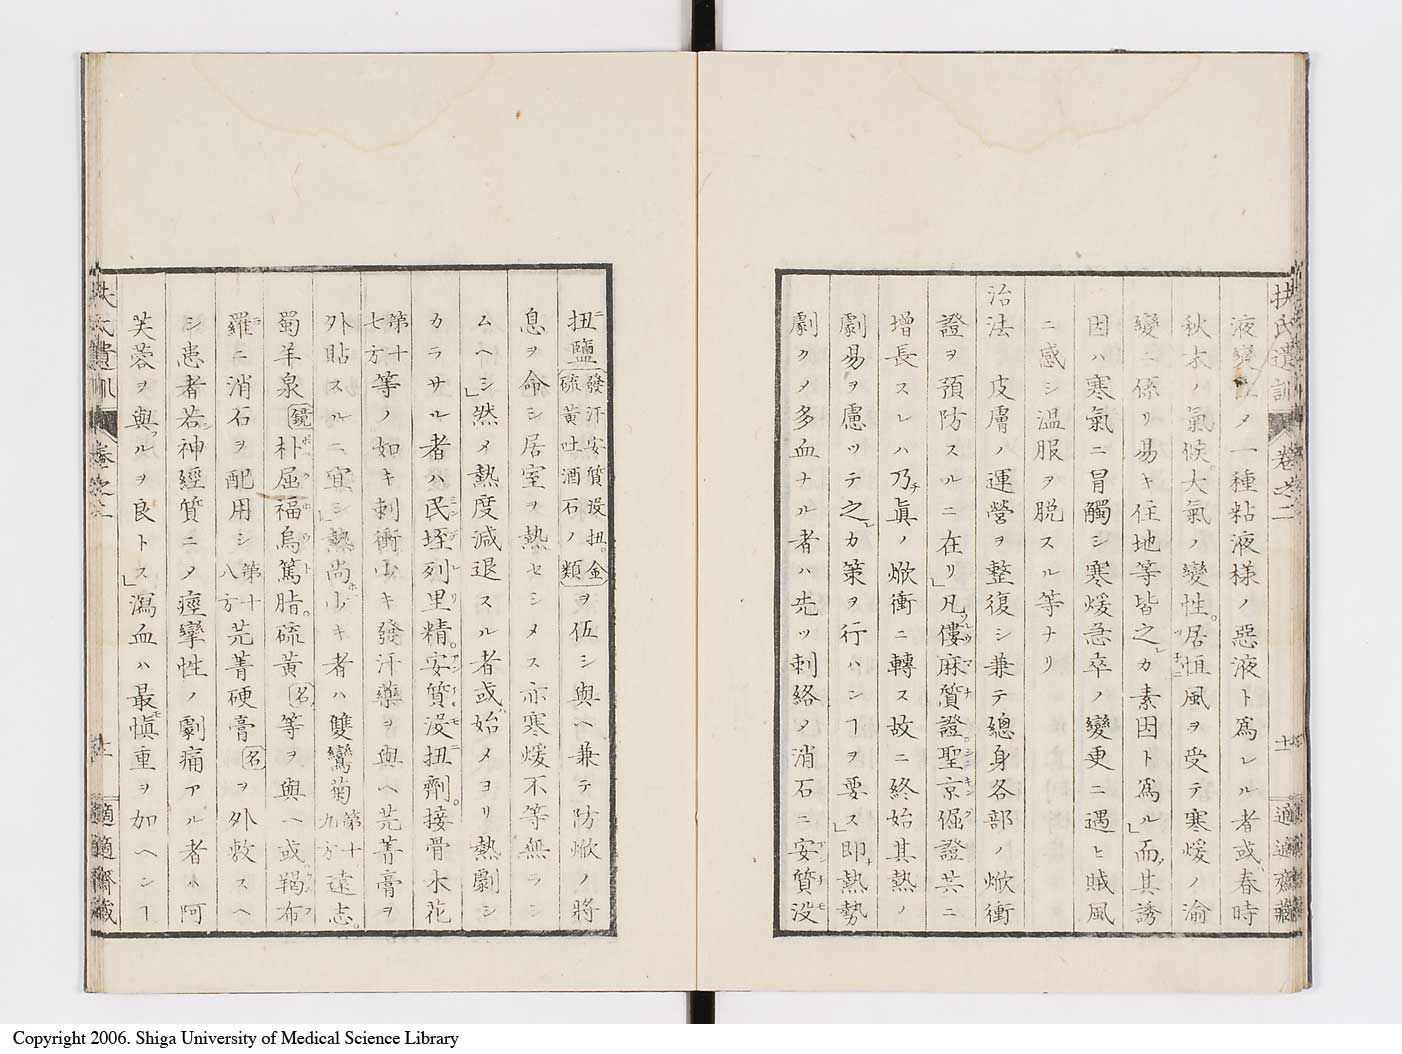 扶氏遺訓 卷之二 十一 適適齋藏
液變シメ一種粘液様ノ惡液ト爲レル者或ハ春時
秋末ノ氣候。大氣ノ變性。居恒風ヲ受テ寒煖ノ渝
變ニ係リ易キ住地等皆之レカ素因ト爲ル」而メ其誘
因ハ寒氣ニ冒觸シ寒煖急卒ノ變更ニ遇ヒ賊風
ニ感シ温服ヲ脱スル等ナリ
治法 皮膚ノ運營ヲ整復シ兼テ總身各部ノ焮衝
證ヲ預防スルニ在リ」凡僂麻質證。聖京倔證共ニ
增長スレハ乃チ眞ノ焮衝ニ轉ス故ニ終始其熱ノ
劇易ヲ慮ツテ之レカ策ヲ行ハンヿヲ要ス」即チ熱勢
劇クメ多血ナル者ハ先ツ刺絡メ消石ニ安質没
扭鹽 發汗安質没扭。金硫黄吐酒石ノ類 ヲ伍シ與ヘ兼テ防焮ノ將
息ヲ命シ居室ヲ熱セシメス亦寒煖不等無ラシ
ムヘシ」然メ熱度減退スル者或ハ始メヨリ熱劇シ
カラサル者ハ民垤列里精。安質没扭劑。接骨木花
第十七方等ノ如キ刺衝少キ發汗藥ヲ與ヘ芫菁膏ヲ
外貼スルニ宜シ」熱尚ホ少キ者ハ雙鸞菊 第十九方 遠志。
蜀羊泉 鏡 朴屈福烏篤脂。硫黄 名 等ヲ與ヘ或ハ羯布
羅ニ消石ヲ配用シ 第十八方 芫菁硬膏 名 ヲ外敷スヘ
シ患者若シ神經質ニメ痙攣性ノ劇痛アル者ハ阿
芙蓉ヲ與ルヲ良トス」瀉血ハ最モ愼重ヲ加ヘシヿ
扶氏遺訓 卷之二 適適齋藏